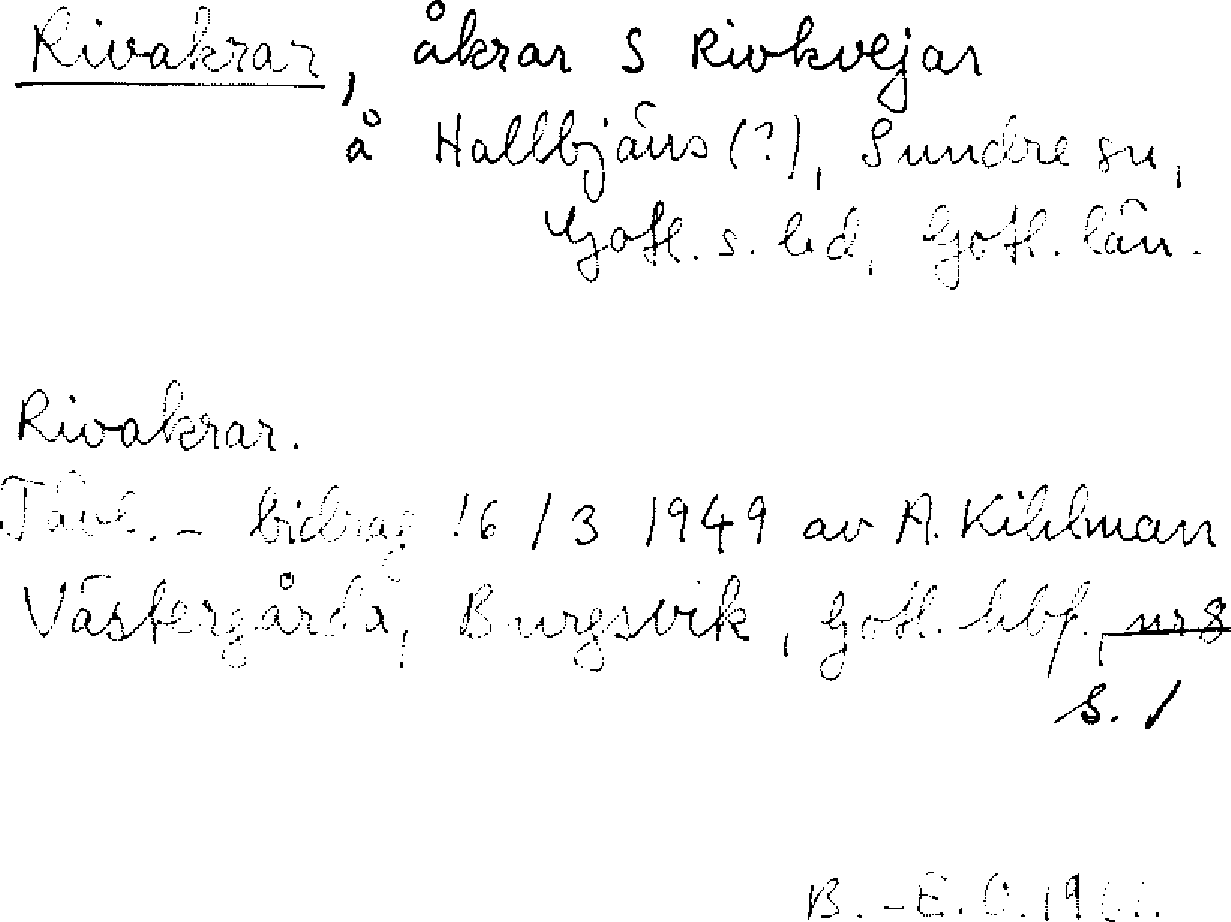 Rivakrar, åkrar S Rivkvejar
å Hallbjäns (?), Sundre sn,
Gotl. s. hd, Gotl. län.
Rivakrar.
Tävl. - bidrag 16/3 1949 av A. Kihlman
Västergårda, Burgsvik, Gotl. hbf., nr 8
s. 1
B.-E. O.